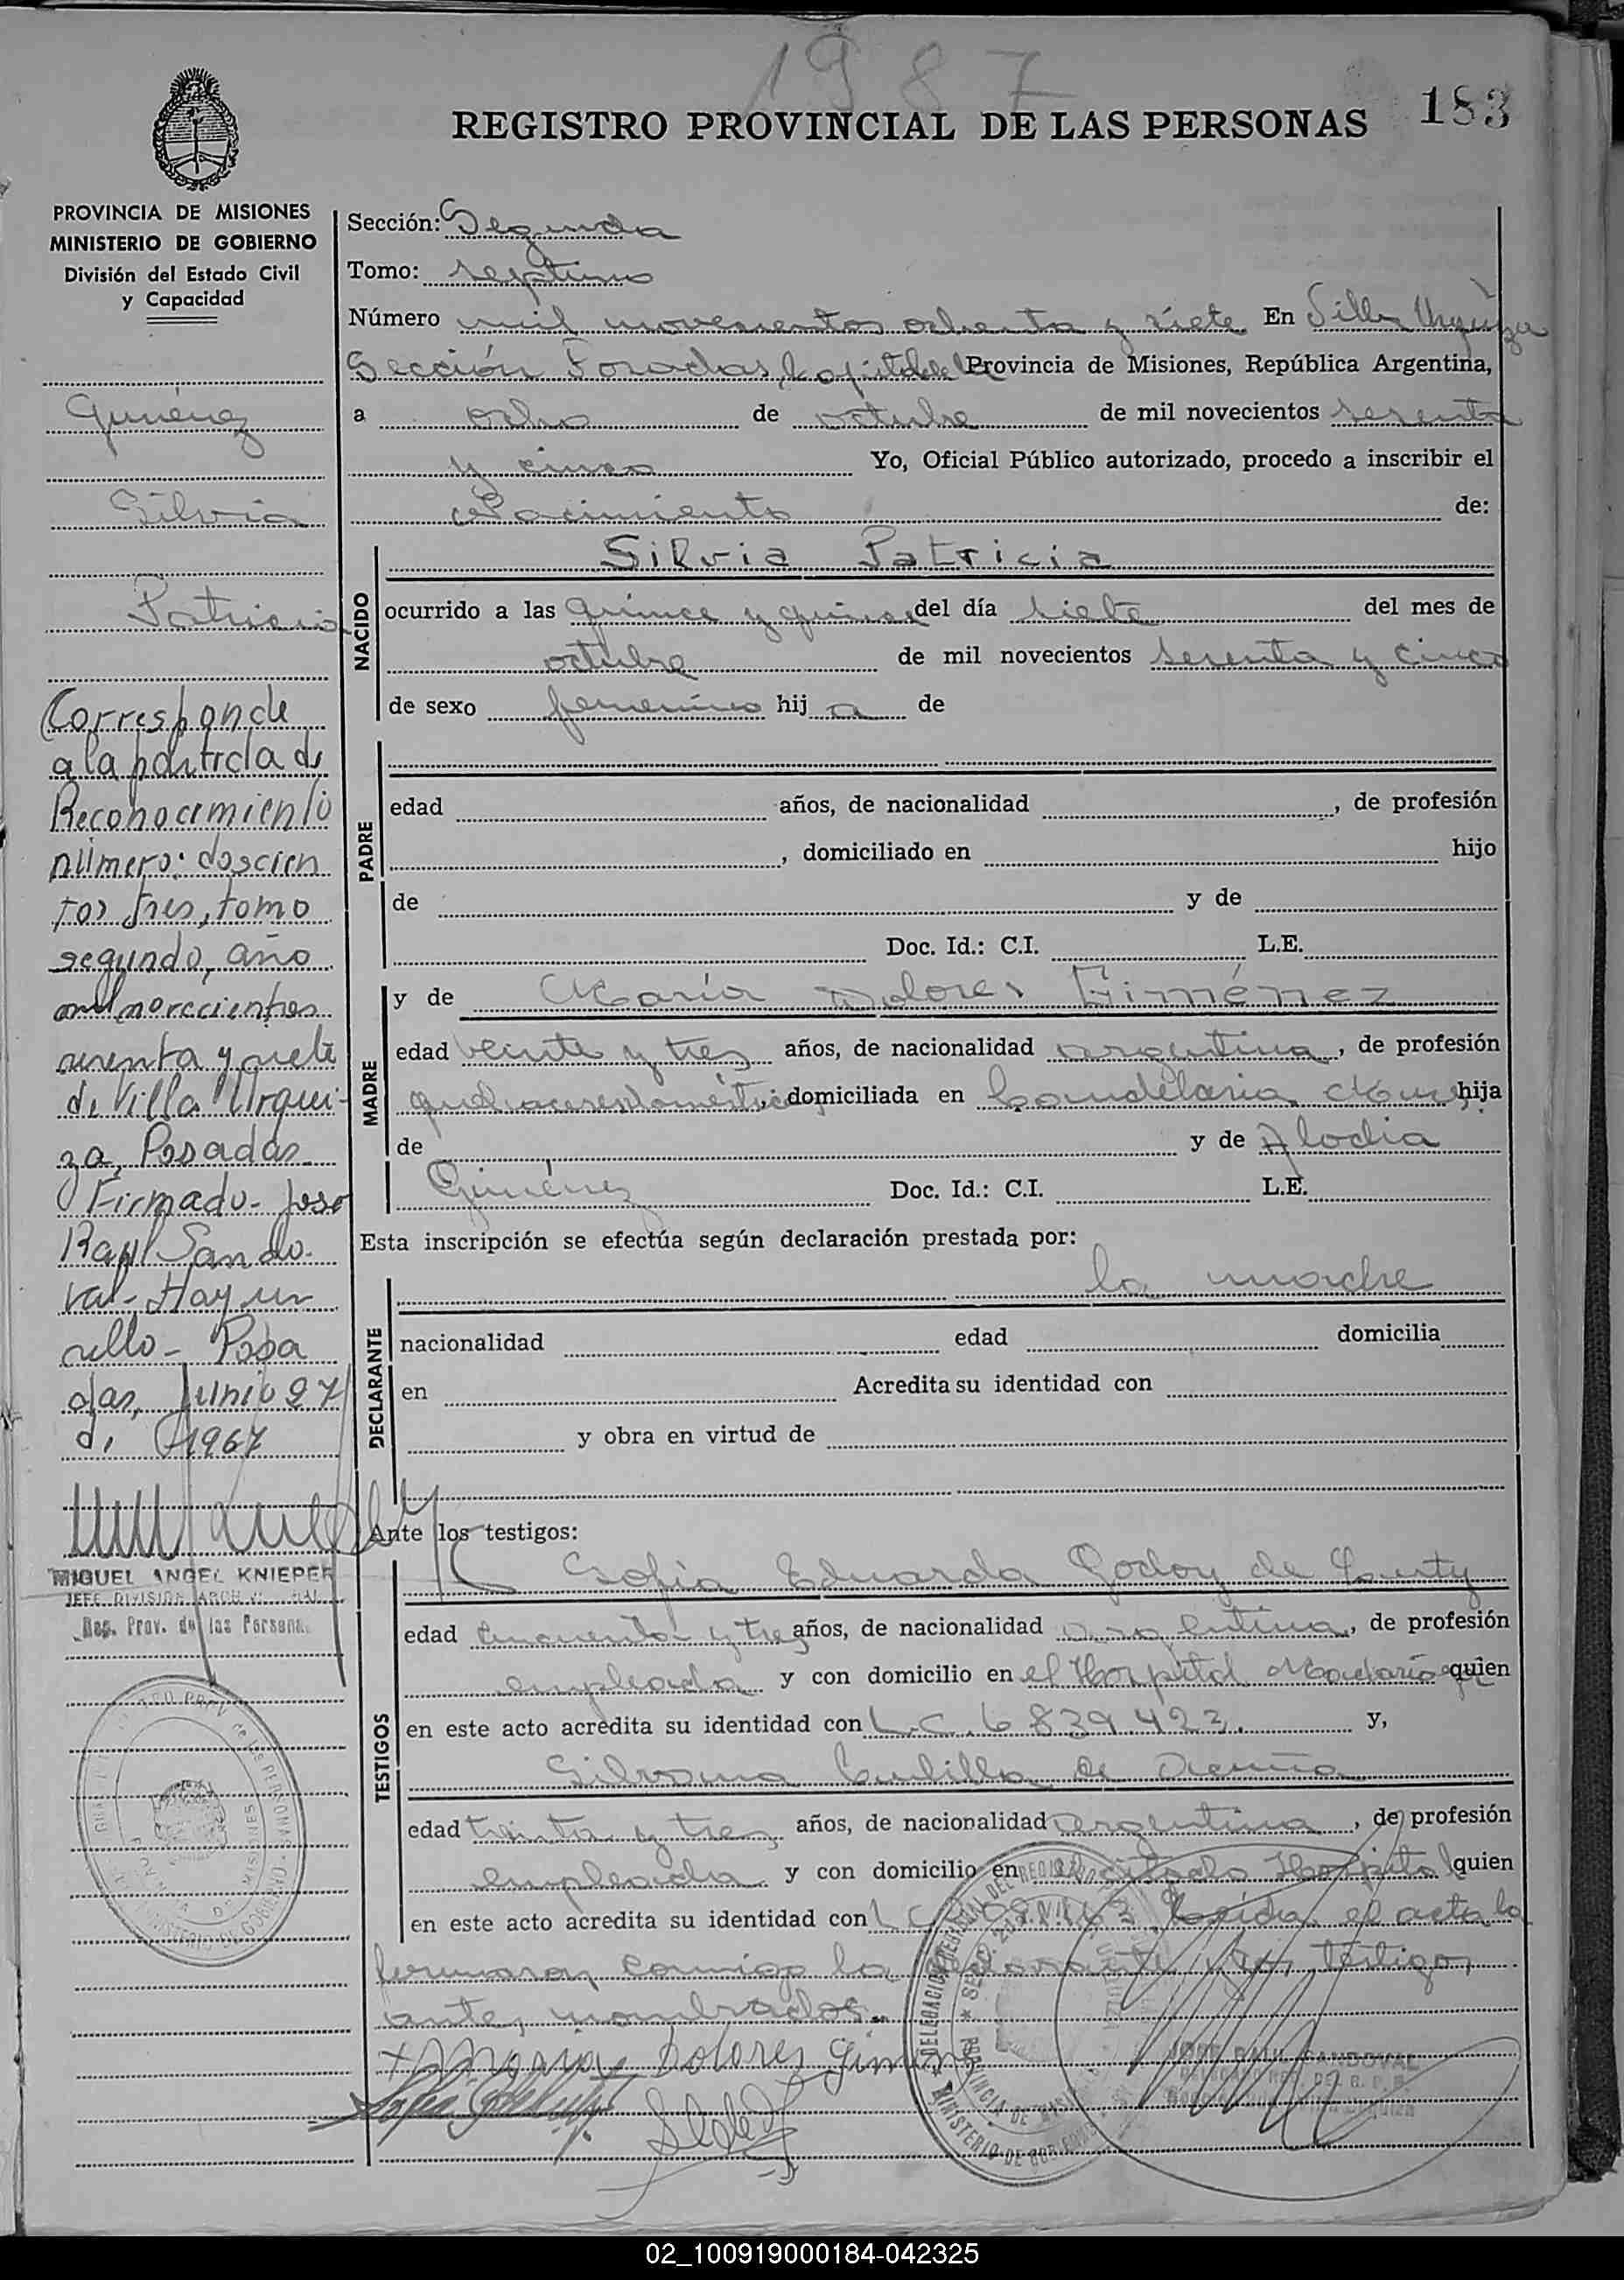 1987
REGISTRO PROVINCIAL DE LAS PERSONAS 183
PROVINCIA DE MISIONES
MINISTERIO DE GOBIERNO
División del Estado Civil
y Capacidad
Giménez
Silvia
Patricia
Corresponde
a la partida de
Reconocimiento
número: doscien
tos tres, tomo
segundo, año
mil novecientos
sesenta y siete
de Villa Urqui-
za, Posadas
Firmado - José
Raúl Sando-
val - Hay un
sello - Posa
das, Junio 27
de 1967
MIGUEL ANGEL KNIEPER
JEFE DIVISION
Reg. Prov. de las Personas
Sección: Segunda
Tomo: septimo
Número mil novecientos ochenta y siete En Villa Urquiza
Sección Posadas, Capital de la Provincia de Misiones, República Argentina,
a ocho de octubre de mil novecientos sesenta
y cinco Yo, Oficial Público autorizado, procedo a inscribir el
Nacimiento de:
NACIDO
Silvia Patricia
ocurrido a las quince y quince del día siete del mes de
octubre de mil novecientos sesenta y cinco
de sexo femenino hij a de
PADRE
edad años, de nacionalidad , de profesión
, domiciliado en hijo
de y de
Doc. Id.: C.I. L.E.
MADRE
y de María Dolores Giménez
edad veinte y tres años, de nacionalidad argentina, de profesión
quehaceres domésticos, domiciliada en Candelaria hija
de y de Alodia
Giménez Doc. Id.: C.I. L.E.
Esta inscripción se efectúa según declaración prestada por:
DECLARANTE
la madre
nacionalidad edad domicilia
en Acredita su identidad con
y obra en virtud de
Ante los testigos:
TESTIGOS
Sofia Eduarda Godoy de
edad cincuenta y tres años, de nacionalidad argentina, de profesión
empleada y con domicilio en el Hospital Madariaga quien
en este acto acredita su identidad con L.C. 6839423. y,
Silvana de Acuña
edad treinta y tres años, de nacionalidad argentina, de profesión
empleada y con domicilio en el citado Hospital quien
en este acto acredita su identidad con L.C. Leída el acta la
firmaron conmigo la declarante y los testigos
antes nombrados.-
María Dolores Giménez
JOSE RAUL SANDOVAL
02_100919000184-042325